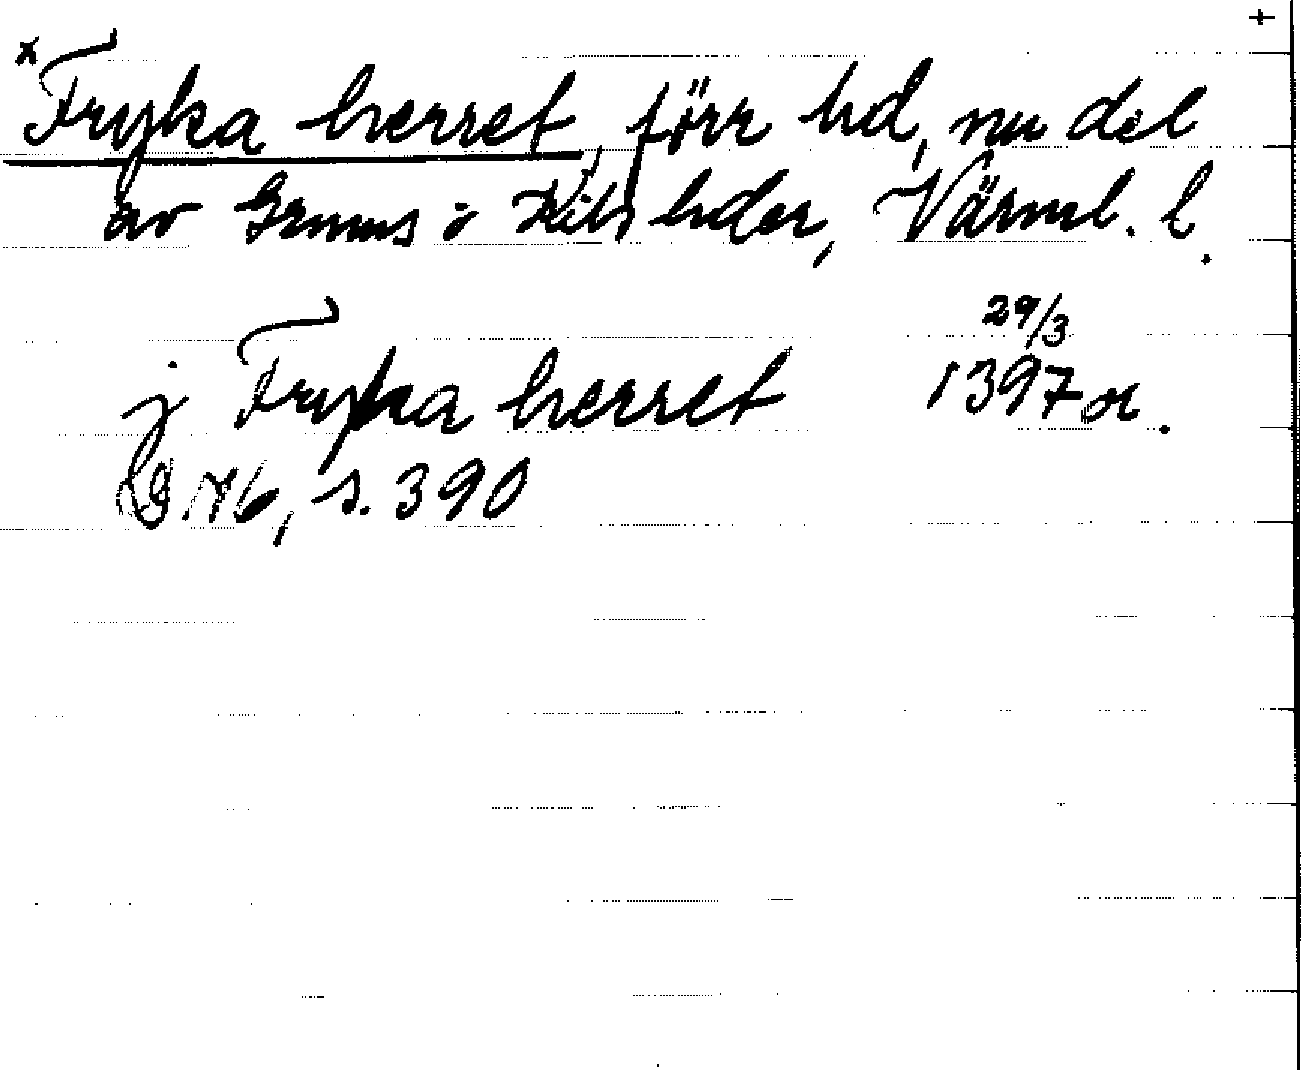 +
x Fryka herret, förr hd, nu del
av Grums o Kils hder, Värml. l.
j Fryka herret 29/3 1397 or.
B 176, s. 390